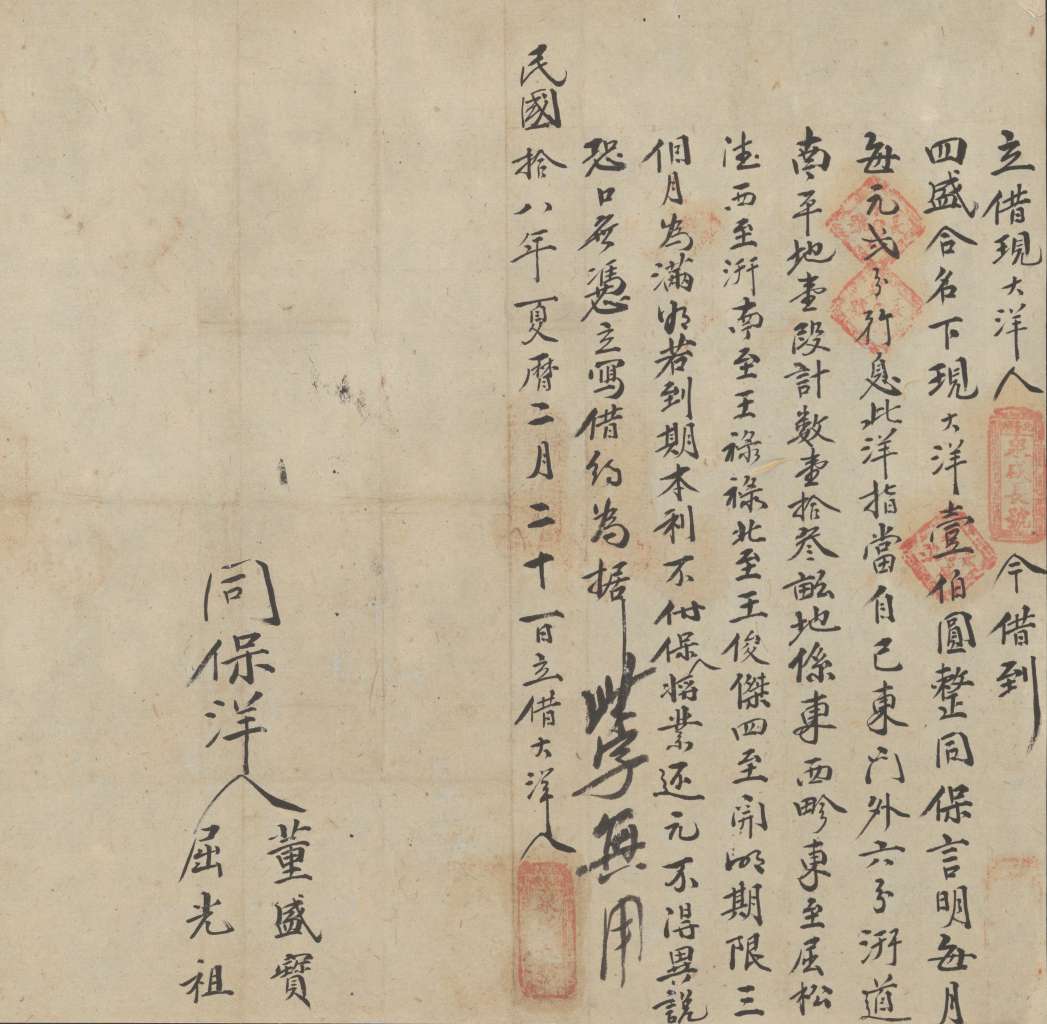 立借現大洋人 泉斌長號 今借到
四盛合名下現大洋壹伯圓整同保言明每月
每元弍分行息此洋指當自己東门外六分洴道
南平地壹段計数壹拾叁畝地係東西畛東至屈松
洼西至洴南至王祿祿北至王俊傑四至開明期限三
個月為滿明若到期本利不付保人將業还元不得異說
恐口無憑立寫借约為据
此字無用
民國拾八年夏曆二月二十一日立借大洋人
同保洋人
董盛寶
屈光祖